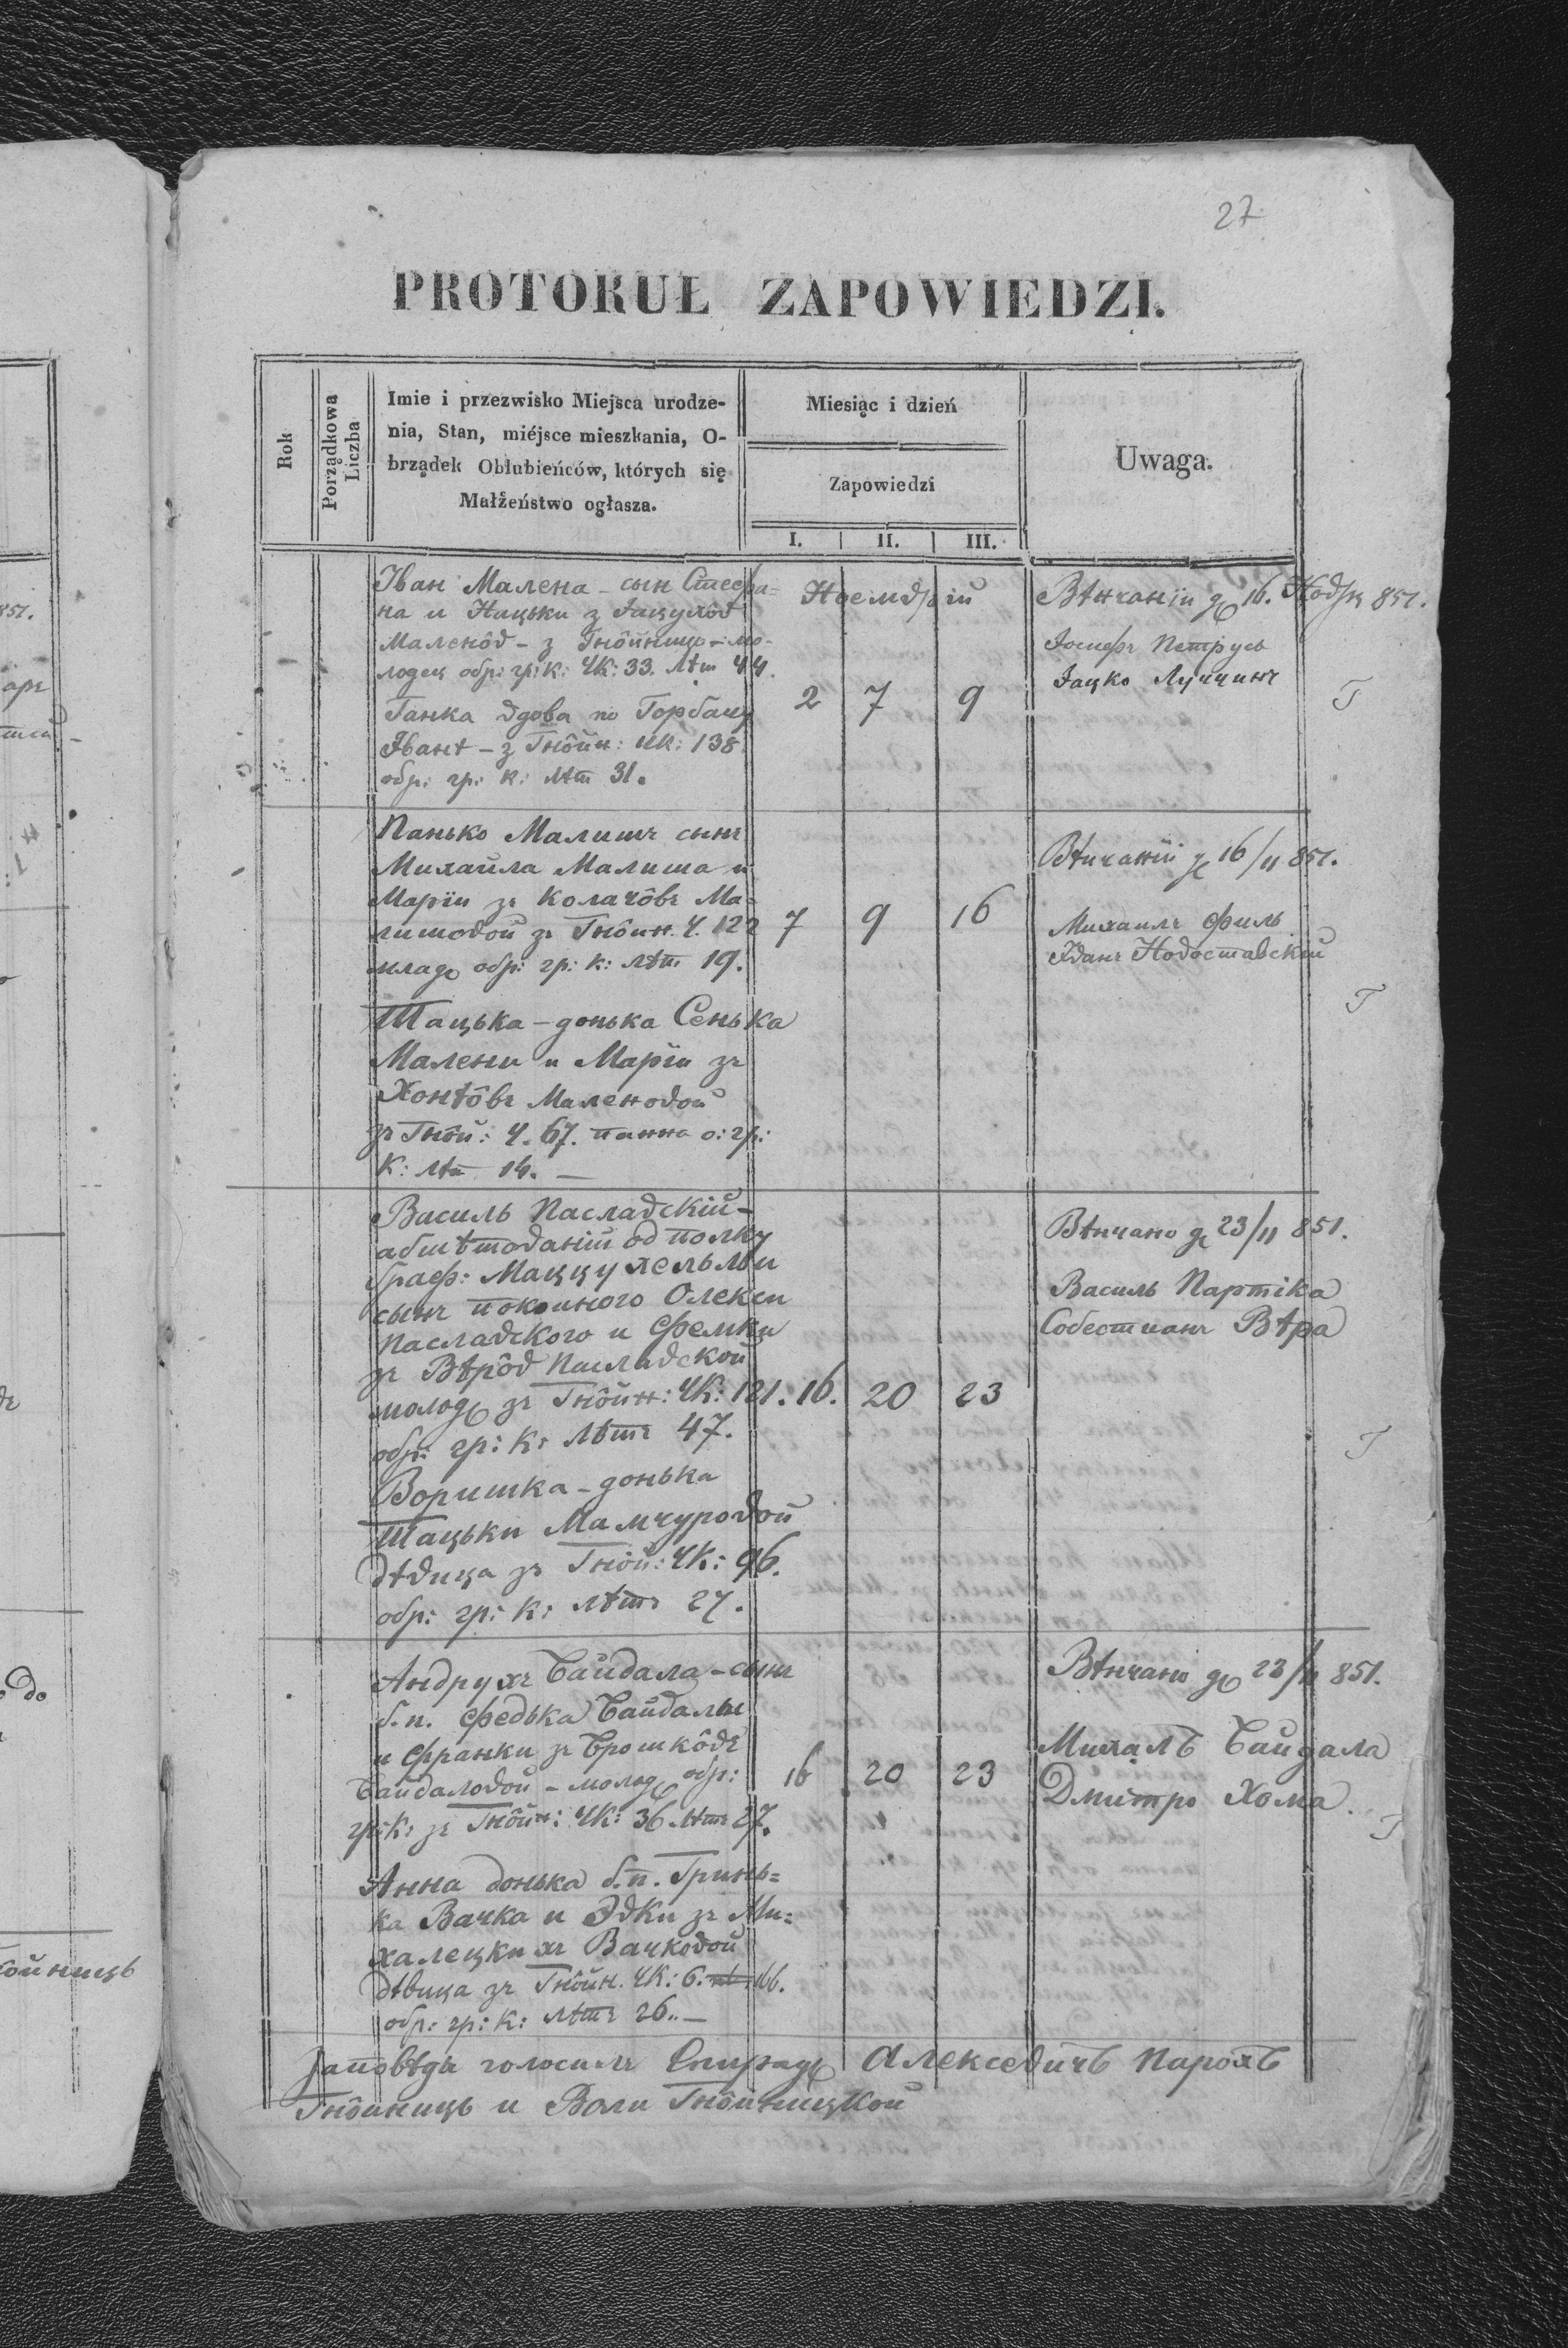 27
PROTOKUŁ ZAPOWIEDZI.
Rok
Porządkowa
Liczba
Imie i przezwisko Miejsca urodze-
nia, Stan, miéjsce mieszkania, O-
brządek Oblubieńców, których się
Małżeństwo ogłasza.
Miesiąc i dzień
Zapowiedzi
I. II. III.
Uwaga.
Іван Малена - сын Стефа=
на и Нацьки з Яцулôв
Маленôв - з Гнôйниць - мо-
лодец обр: гр: к: ЧК: 33. лѣт 44.
Ганка вдова по Горбачу
Івант - з Гнôйн: чк: 138
обр: гр: к: лѣт 31.
Ноемврій
2 7 9
Вѣнчаніи д 16. Новр 851.
Іосифъ Петрусь
Яцко Лупчинъ
Г
Панько Малишъ сынъ
Михаила Малиша и
Маріи зъ Колачôвъ Ма-
лишовой зъ Гнôйн. Ч. 122
млад обр: гр: к: лѣт 19.
Тацька - донька Сенька
Малени и Маріи зъ
Хонтôвъ Маленовои
зъ Гнôй: Ч. 67. панна о: гр:
К: лѣт 14. —
7 9 16
Вѣнчаніи д 16/11 851.
Михаилъ Филь
Іванъ Новоставскій
Г
Василь Паславскій -
абшѣтованій од полку
Граф: Маццухельли
сынъ покойного Олекси
Паславского и Фемки
зъ Вѣрôв Паславской
молод зъ Гнôйн: ЧК: 121.
обр: гр: К: Лѣтъ 47.
Воришка - донька
Тацьки Мамчуровой
дѣвица зъ Гнôй: ЧК: 96.
обр: гр: К: лѣтъ 27.
16. 20 23
Вѣнчано д 23/11 851.
Василь Партіка
Собестианъ Вѣра
Г
Андрухъ Байвала - сынъ
б.п. Федька Байвалы
и Франки зъ Брошкôвъ
Байваловой - молод обр:
гр: К: зъ Гнôйн: ЧК: 36 лѣтъ 27.
Анна донька б.п. Гринь=
ка Вачка и Эвки зъ Ми=
халецкихъ Вачковой
дѣвица зъ Гнôйн. ЧК: 6. 166.
обр: гр: К: лѣтъ 26. —
16 20 23
Вѣнчано д 23/11 851.
Михалъ Байдала
Дмитро Хома.
Г
Заповѣди голосилъ Спирид Алексевичъ Парохъ
Гнôйниць и Воли Гнôйницкой